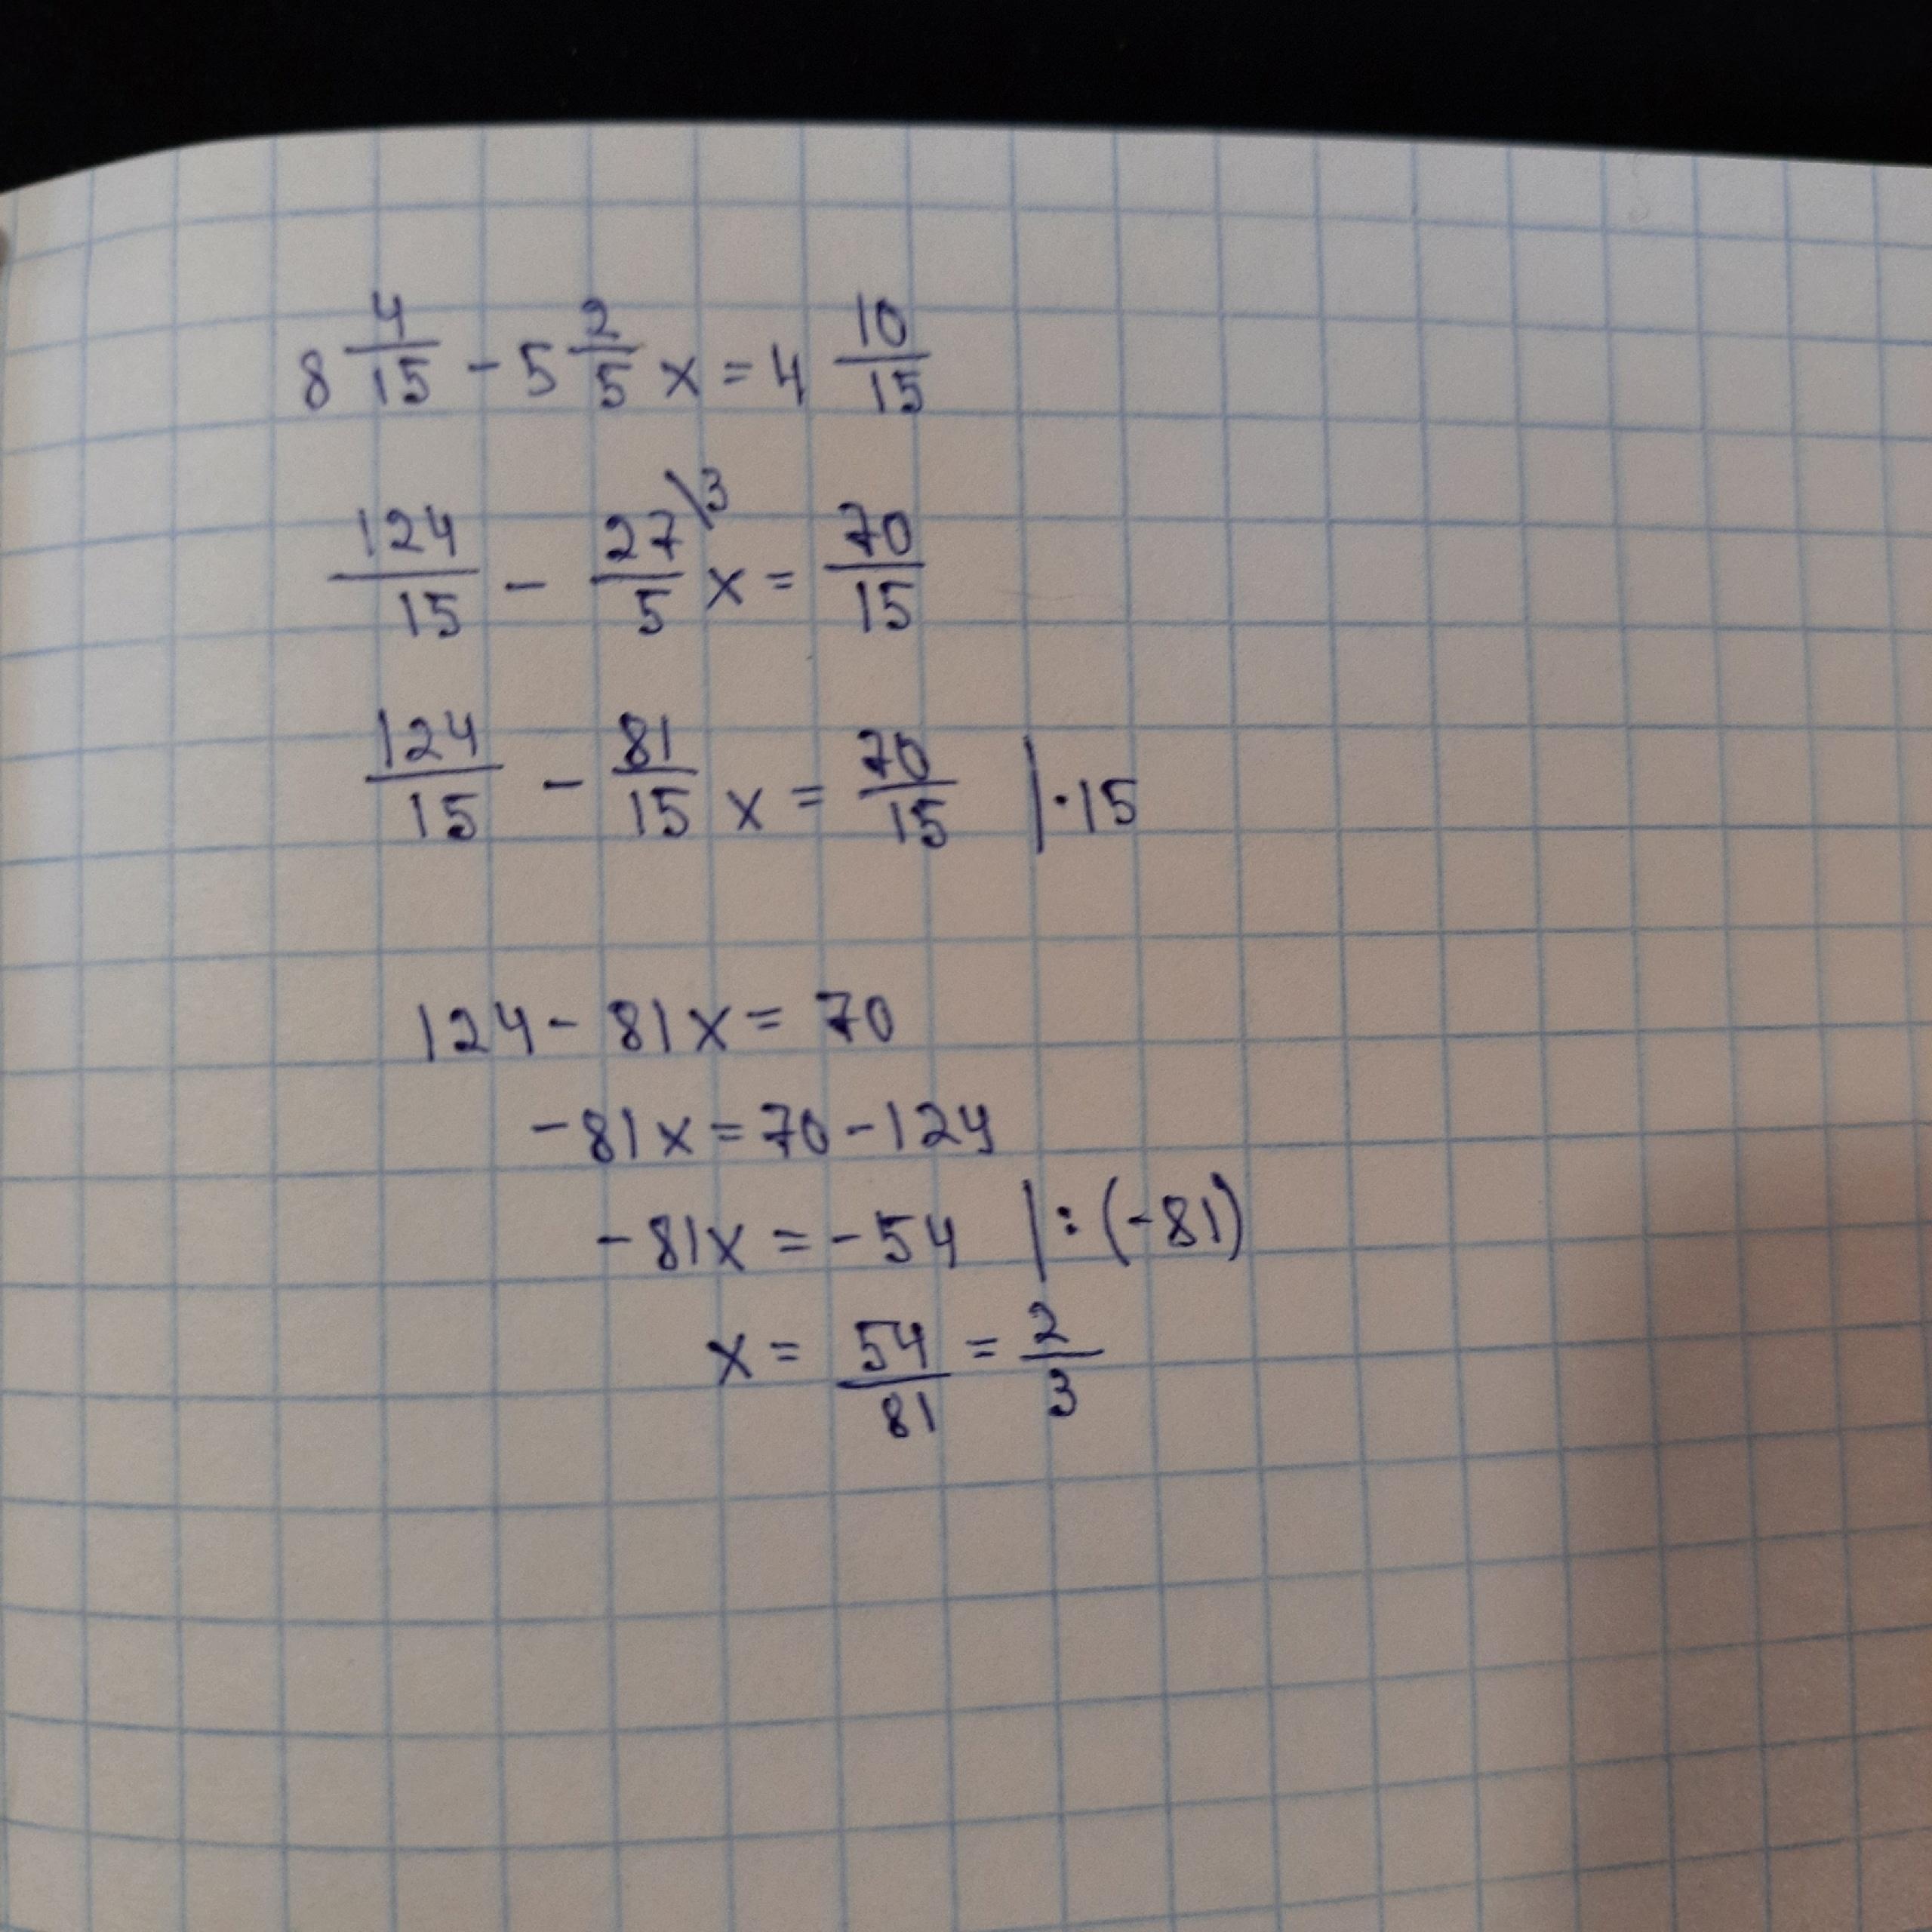 8 4/15 - 5 2/5 x = 4 10/15
124/15 - 27\3/5 x = 70/15
124/15 - 81/15 x = 70/15 | · 15
124 - 81x = 70
- 81x = 70 - 124
- 81x = - 54 | : (-81)
x = 54/81 = 2/3